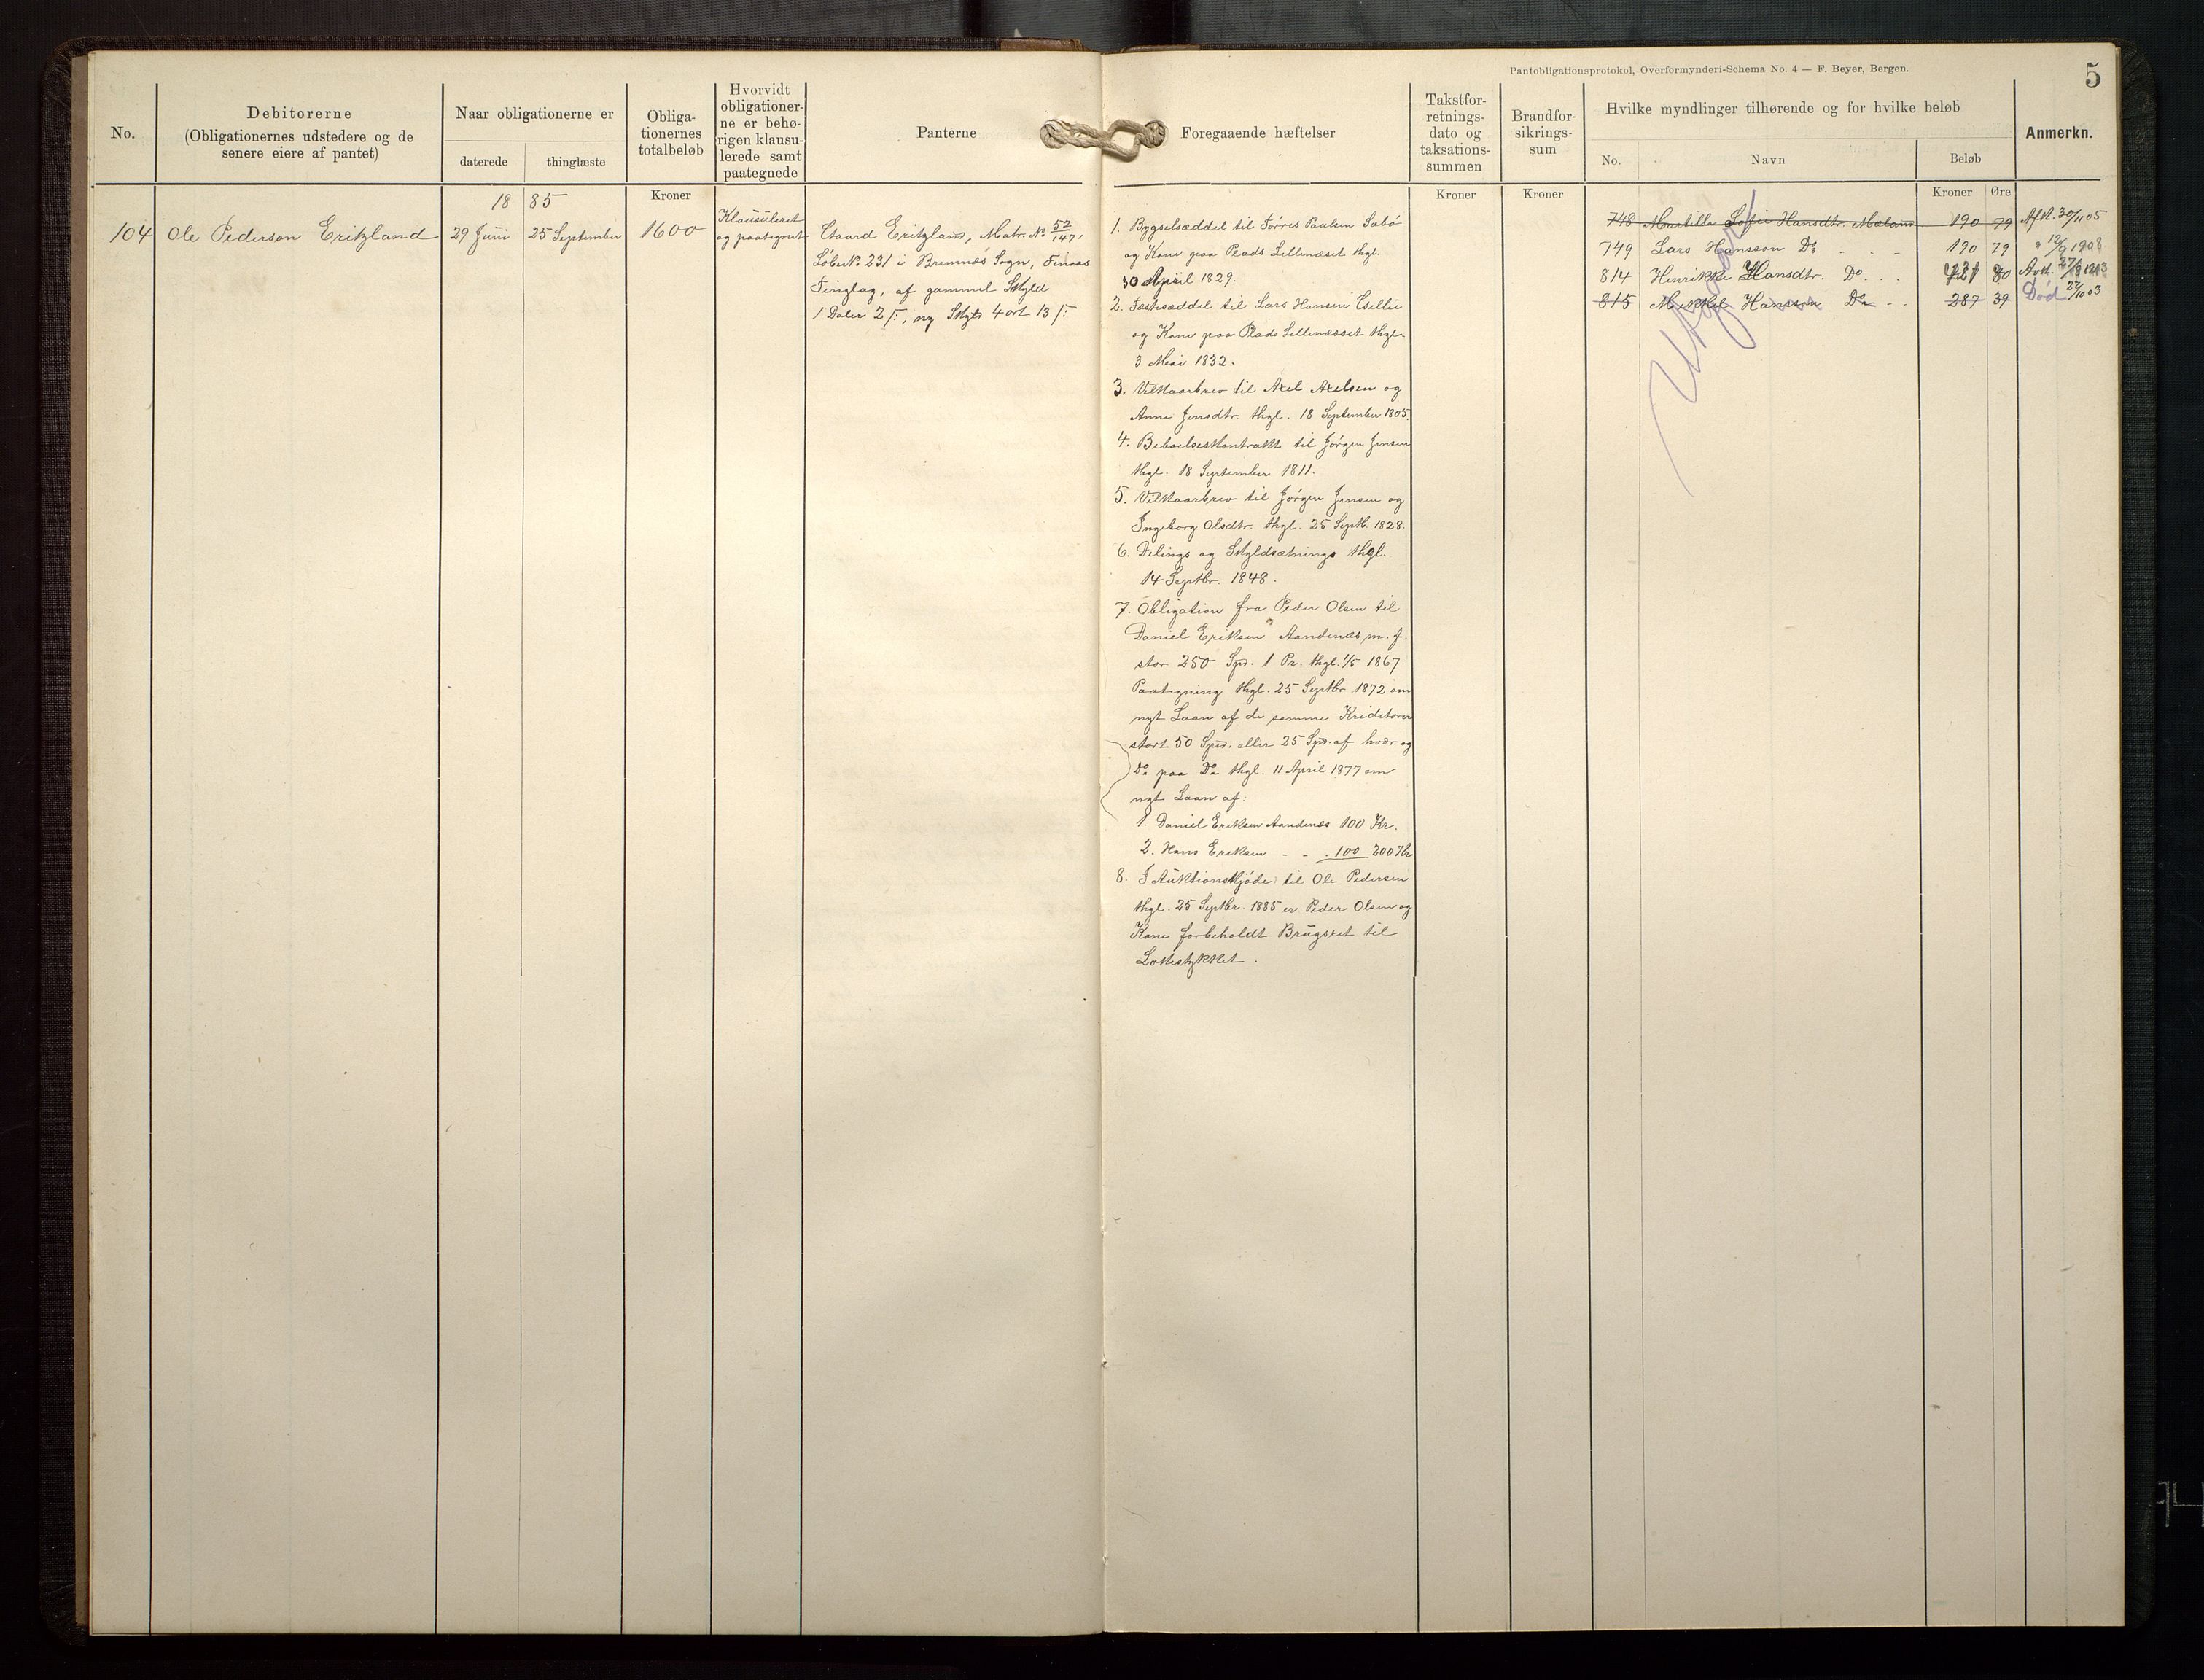 Pantobligationsprotokol, Overformynderi-Schema No. 4 — F. Beyer, Bergen.
5
No.
Debitorerne
(Obligationernes udstedere og de
senere eiere af pantet)
Naar obligationerne er
daterede
thinglæste
Obliga-
tionernes
totalbeløb
Hvorvidt
obligationer-
ne er behø-
rigen klausu-
lerede samt
paategnede
Panterne
Foregaaende hæftelser
Takstfor-
retnings-
dato og
taksations-
summen
Brandfor-
sikrings-
sum
Hvilke myndlinger tilhørende og for hvilke beløb
No.
Navn
Beløb
Anmerkn.
Kroner
Kroner
Kroner
Kroner
Øre
18 85
104
Ole Pederson Eritzland
29 Juni
25 September
1600
Klausuleret
og paategnet
Gaard Eritzland, Matr. No 52/147,
Løbe No 231 i Bremnæs Sogn, Finaas
Tinglag, af gammel Skyld
1 Daler 2 ß, ny Skyld 4 ort 13 ß
1. Bygselsæddel til Torres Paulsen Sabø
og Kone paa Plads Lillenæset thgl.
30 April 1829.
2. Fæstesæddel til Lars Hansen
og Kone paa Plads Lillenæsset thgl.
3 Mai 1832.
3. Vilkaarbrev til Axel Axelsen og
Anne Jensdtr. thgl. 18 September 1805.
4. Beboelseskontrakt til Jørgen Jensen
thgl. 18 September 1811.
5. Vilkaarbrev til Jørgen Jensen og
Ingeborg Olsdtr. thgl. 25 Septb. 1828.
6. Delings og Skyldsætnings thgl.
14 Septbr. 1848.
7. Obligation fra Peder Olsen til
Daniel Eriksen Aandenæs m. fl.
stor 250 Spd. 1 Pr. thgl. 1/5 1867
Paategning thgl. 25 Septbr 1872 om
nyt Laan af de samme Kreditorer
stort 50 Spd. eller 25 Spd. af hver og
Do paa Do thgl. 11 April 1877 om
nyt Laan af:
1. Daniel Eriksen Aandenæs 100 Kr.
2. Hans Eriksen - - . 100 200 Kr
8. I Auktionskjøde til Ole Pedersen
thgl. 25 Septbr. 1885 er Peder Olsen og
Kone forbeholdt Brugsret til
Løkkestykket.
748 Martille Sofie Hansdtr. Mæland 190 79 Afbt. 30/11 05
749 Lars Hansson Do - - - 190 79 " 12/2 1908
814 Henrikke Hansdtr. Do. . . 80
815 Mikkel Hansson Do - - 287 39 Død 22/10 03
Utgaar